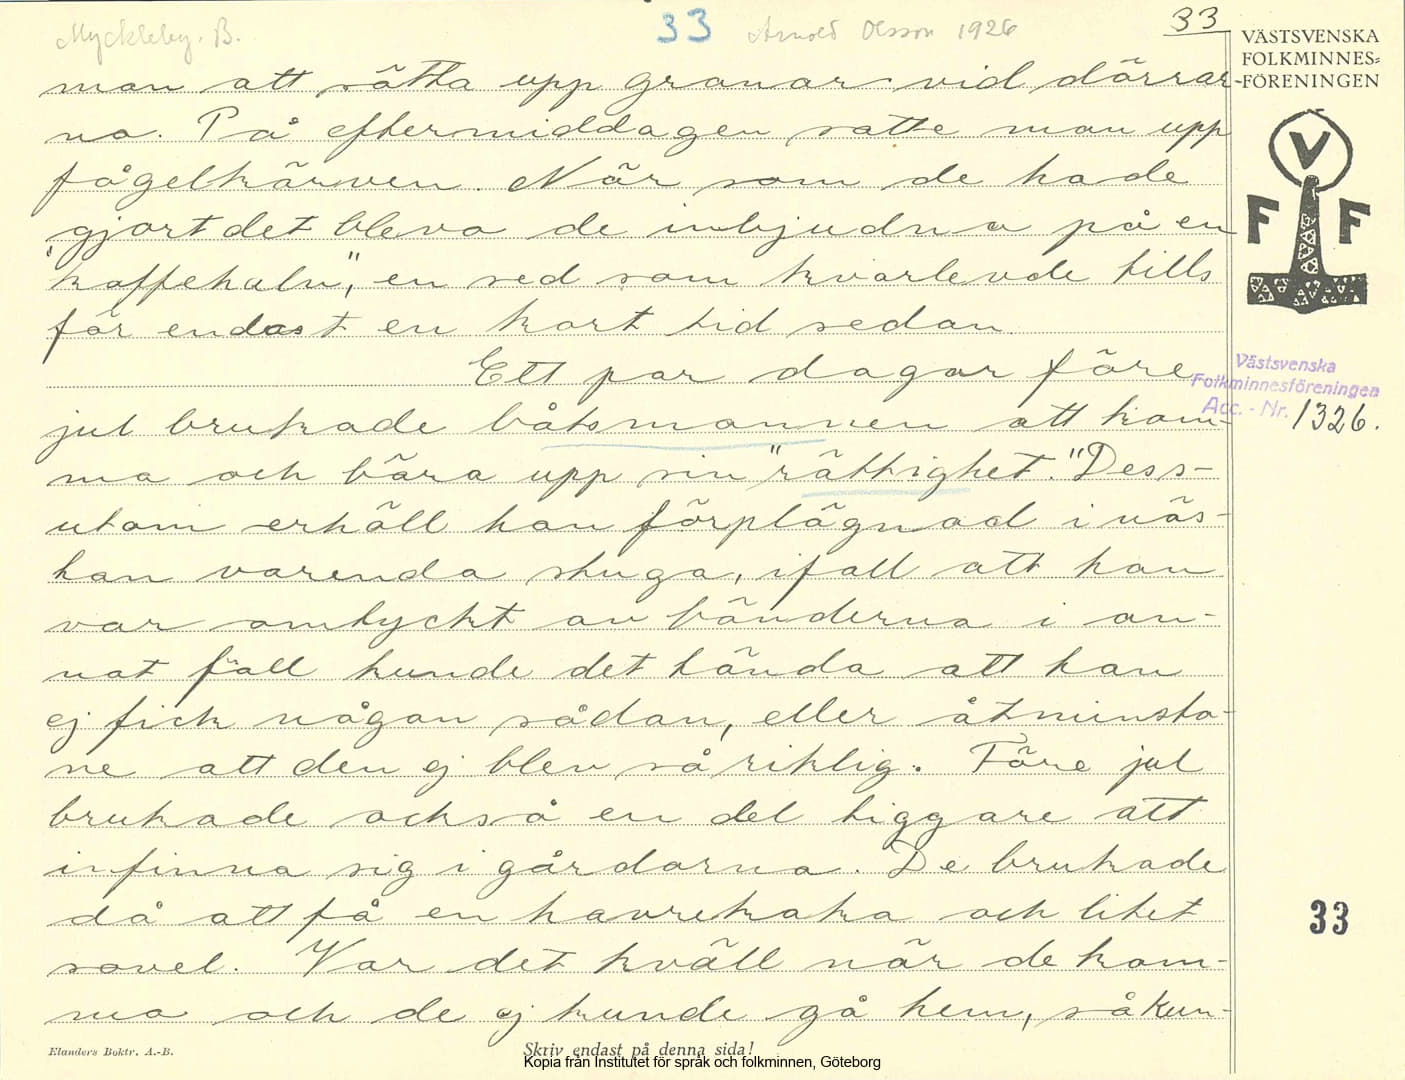 Myckleby. B.
33
Arnold Olsson 1926
33
VÄSTSVENSKA
FOLKMINNES=
-FÖRENINGEN
V
F F
man att sätta upp granar vid dörrar-
na. På eftermiddagen satte man upp
fågelkärven. När som de hade
gjort det bleva de inbjudna på en
"kaffehaln", en sed som kvarlevde tills
för endast en kort tid sedan.
Ett par dagar före
jul brukade båtsmannen att kom-
ma och bära upp sin "rättighet." Dess-
utom erhöll han förplägnad i näs-
tan varenda stuga, ifall att han
var omtyckt av bönderna i an-
nat fall kunde det hända att han
ej fick någon sådan, eller åtminsto-
ne att den ej blev så riklig. Före jul
brukade också en del tiggare att
infinna sig i gårdarna. De brukade
då att få en havrekaka och litet
sovel. Var det kväll när de kom-
ma och de ej kunde gå hem, så kun-
Västsvenska
Folkminnesföreningen
Acc. - Nr. 1326.
33
Elanders Boktr. A.-B.
Skriv endast på denna sida!
Kopia från Institutet för språk och folkminnen, Göteborg